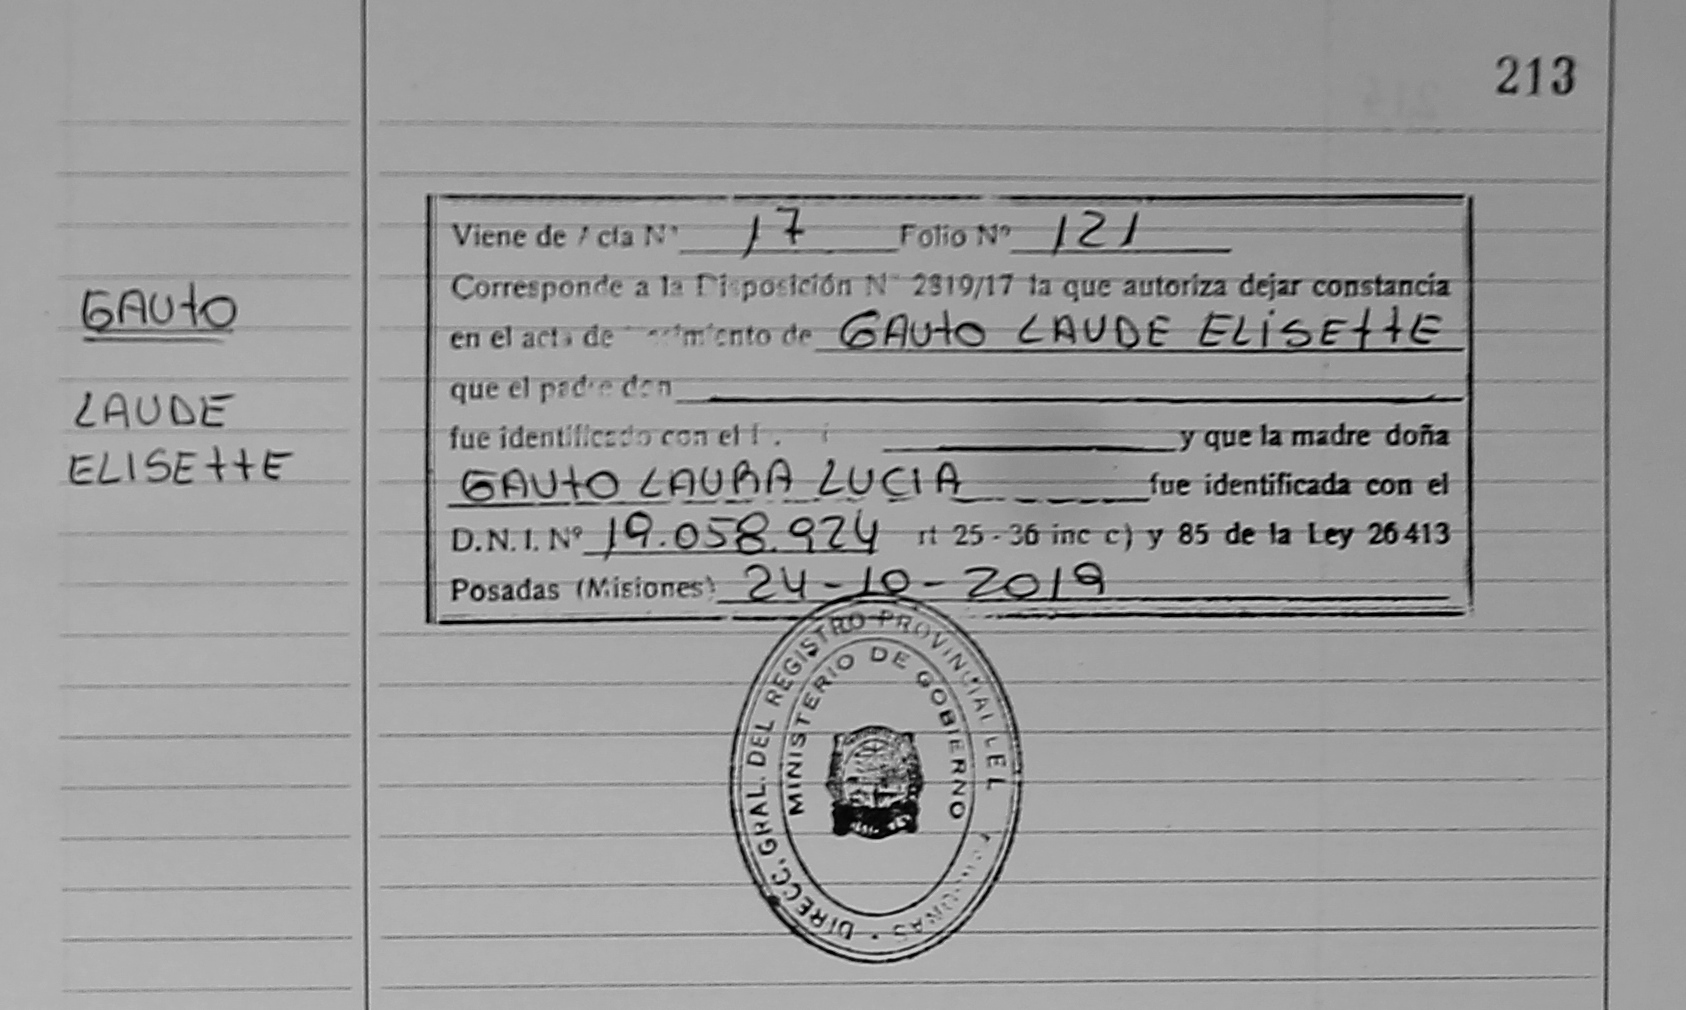 213
GAUTO
LAUDE
ELISETTE
Viene de Acta Nº 17 Folio Nº 121
Corresponde a la Disposición Nº 2819/17 la que autoriza dejar constancia
en el acta de nacimiento de GAUTO LAUDE ELISETTE
que el padre don
fue identificado con el y que la madre doña
GAUTO LAURA LUCIA fue identificada con el
D.N.I. Nº 19.058.924 rt 25 - 36 inc c) y 85 de la Ley 26413
Posadas (Misiones) 24-10-2019
DIRECC. GRAL. DEL REGISTRO PROVINCIAL DE PERSONAS
MINISTERIO DE GOBIERNO